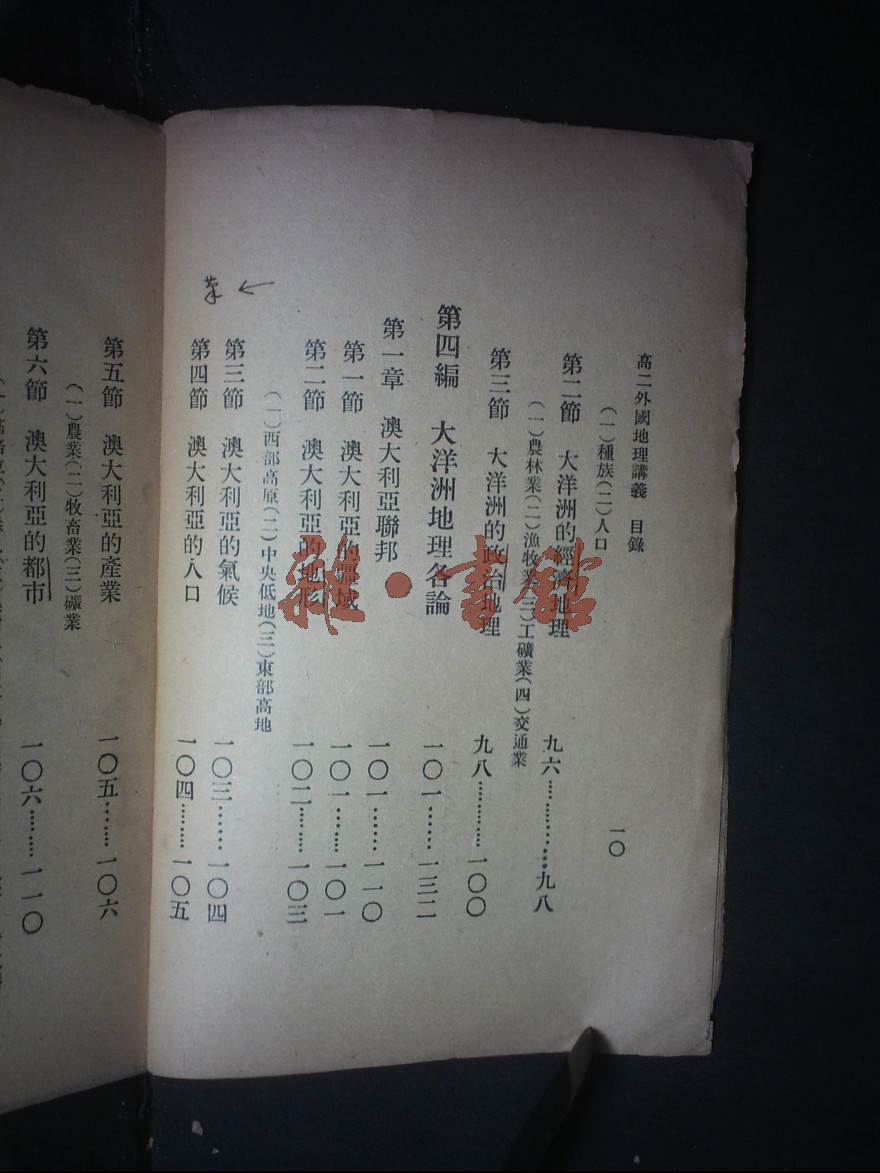 高二外國地理講義　目錄　一〇
(一)種族(二)人口
第二節　大洋洲的經濟地理　九六…………九八
(一)農林業(二)漁牧業(三)工礦業(四)交通業
第三節　大洋洲的政治地理　九八…………一〇〇
第四編　大洋洲地理各論　一〇一……一三二
第一章　澳大利亞聯邦　一〇一……一一〇
第一節　澳大利亞的疆域　一〇一……一〇一
第二節　澳大利亞的地形　一〇二………一〇三
(一)西部高原(二)中央低地(三)東部高地
第三節　澳大利亞的氣候　一〇三……一〇四
第四節　澳大利亞的人口　一〇四………一〇五
第五節　澳大利亞的產業　一〇五……一〇六
(一)農業(二)牧畜業(三)礦業
第六節　澳大利亞的都市　一〇六……一一〇
雜·書館